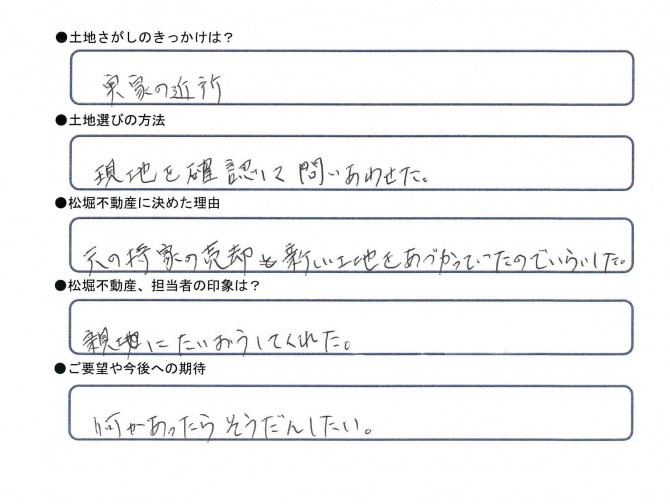 ●土地さがしのきっかけは？
実家の近所
●土地選びの方法
現地を確認して問いあわせた。
●松堀不動産に決めた理由
元の持家の売却も新しい土地をあづかっていったのでいらいした。
●松堀不動産、担当者の印象は？
親地にたいおうしてくれた。
●ご要望や今後への期待
何かあったらそうだんしたい。